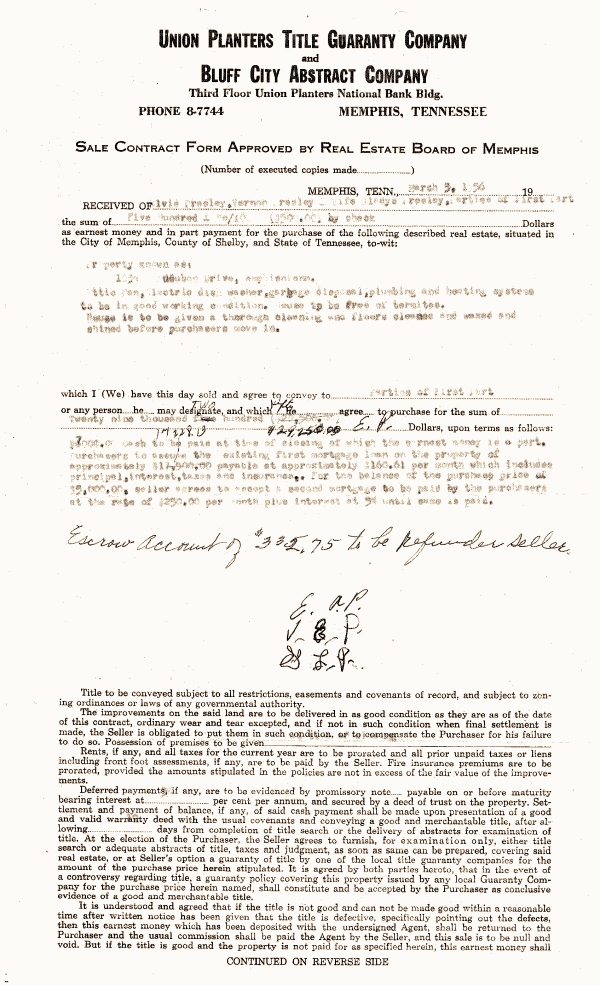 UNION PLANTERS TITLE GUARANTY COMPANY
and
BLUFF CITY ABSTRACT COMPANY
Third Floor Union Planters National Bank Bldg.
PHONE 8-7744 MEMPHIS, TENNESSEE
SALE CONTRACT FORM APPROVED BY REAL ESTATE BOARD OF MEMPHIS
(Number of executed copies made..................)
MEMPHIS, TENN., March 3, 1956 19
RECEIVED OF Elvis Presley, Vernon Presley & Wife Gladys Presley, Parties of First Part
the sum of Five Hundred & No/10 ($500.00) by check Dollars
as earnest money and in part payment for the purchase of the following described real estate, situated in
the City of Memphis, County of Shelby, and State of Tennessee, to-wit:
Property known as:
Drive,
Attic Fan, Electric dish washer, garbage disposal, plumbing and heating systems
to be in good working condition. House to be free of termites.
House is to be given a thorough cleaning and floors cleaned and waxed and
shined before purchasers move in.
which I (We) have this day sold and agree to convey to Parties of First Part
or any person he may designate, and which he agree to purchase for the sum of
Twenty nine thousand Five hundred
$29,250.00 E. P. Dollars, upon terms as follows:
Cash to be paid at time of closing of which the earnest money is a part.
Purchasers to assume the existing first mortgage loan on the property of
approximately payable at approximately $160.61 per month which includes
principal, interest, taxes and insurance,. For the balance of the purchase price of
seller agrees to accept a second mortgage to be paid by the purchasers
at the rate of $250.00 per month plus interest at 5% until same is paid.
Escrow Account of $332.75 to be Refunder seller.
E. A. P.
V. E. P.
G L. P.
Title to be conveyed subject to all restrictions, easements and covenants of record, and subject to zon-
ing ordinances or laws of any governmental authority.
The improvements on the said land are to be delivered in as good condition as they are as of the date
of this contract, ordinary wear and tear excepted, and if not in such condition when final settlement is
made, the Seller is obligated to put them in such condition, or to compensate the Purchaser for his failure
to do so. Possession of premises to be given
Rents, if any, and all taxes for the current year are to be prorated and all prior unpaid taxes or liens
including front foot assessments, if any, are to be paid by the Seller. Fire insurance premiums are to be
prorated, provided the amounts stipulated in the policies are not in excess of the fair value of the improve-
ments.
Deferred payments, if any, are to be evidenced by promissory note..... payable on or before maturity
bearing interest at.................... per cent per annum, and secured by a deed of trust on the property. Set-
tlement and payment of balance, if any, of said cash payment shall be made upon presentation of a good
and valid warranty deed with the usual covenants conveying a good and merchantable title, after al-
lowing.................... days from completion of title search or the delivery of abstracts for examination of
title. At the election of the Purchaser, the Seller agrees to furnish, for examination only, either title
search or adequate abstracts of title, taxes and judgment, as soon as same can be prepared, covering said
real estate, or at Seller's option a guaranty of title by one of the local title guaranty companies for the
amount of the purchase price herein stipulated. It is agreed by both parties hereto, that in the event of
a controversy regarding title, a guaranty policy covering this property issued by any local Guaranty Com-
pany for the purchase price herein named, shall constitute and be accepted by the Purchaser as conclusive
evidence of a good and merchantable title.
It is understood and agreed that if the title is not good and can not be made good within a reasonable
time after written notice has been given that the title is defective, specifically pointing out the defects,
then this earnest money which has been deposited with the undersigned Agent, shall be returned to the
Purchaser and the usual commission shall be paid the Agent by the Seller, and this sale is to be null and
void. But if the title is good and the property is not paid for as specified herein, this earnest money shall
CONTINUED ON REVERSE SIDE